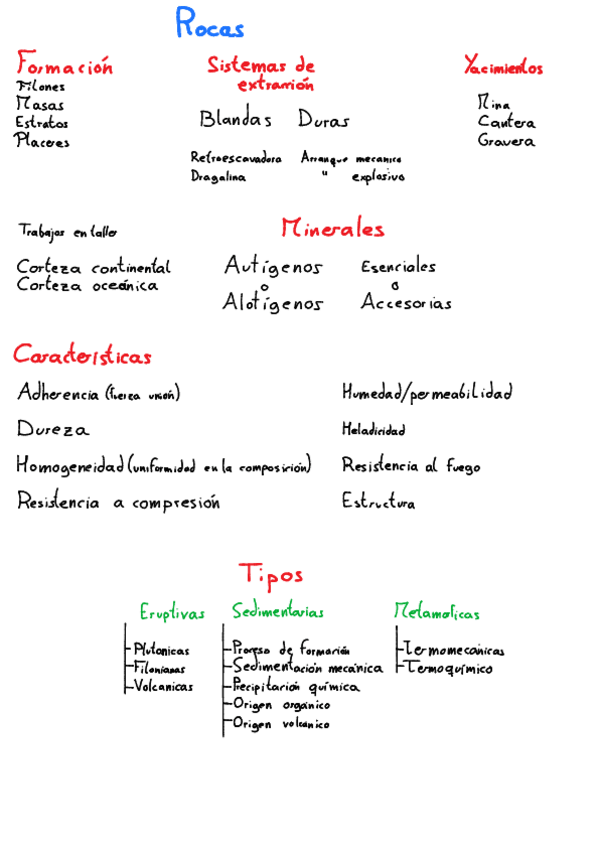 Rocas
Formación
Filones
Masas
Estratos
Placeres
Sistemas de
extracción
Blandas Duras
Retroescavadora Arranque mecanico
Dragalina " explosivo
Yacimientos
Mina
Cantera
Gravera
Trabajos en taller
Corteza continental
Corteza oceánica
Minerales
Autígenos Esenciales
o o
Alotígenos Accesorias
Características
Adherencia (fuerza unión)
Dureza
Homogeneidad (uniformidad en la composición)
Resistencia a compresión
Humedad/permeabilidad
Heladicidad
Resistencia al fuego
Estructura
Tipos
Eruptivas
Plutonicas
Filonianas
Volcanicas
Sedimentarias
Proceso de formación
Sedimentación mecánica
Precipitación química
Origen orgánico
Origen volcanico
Metamoficas
Termomecánicas
Termoquímico